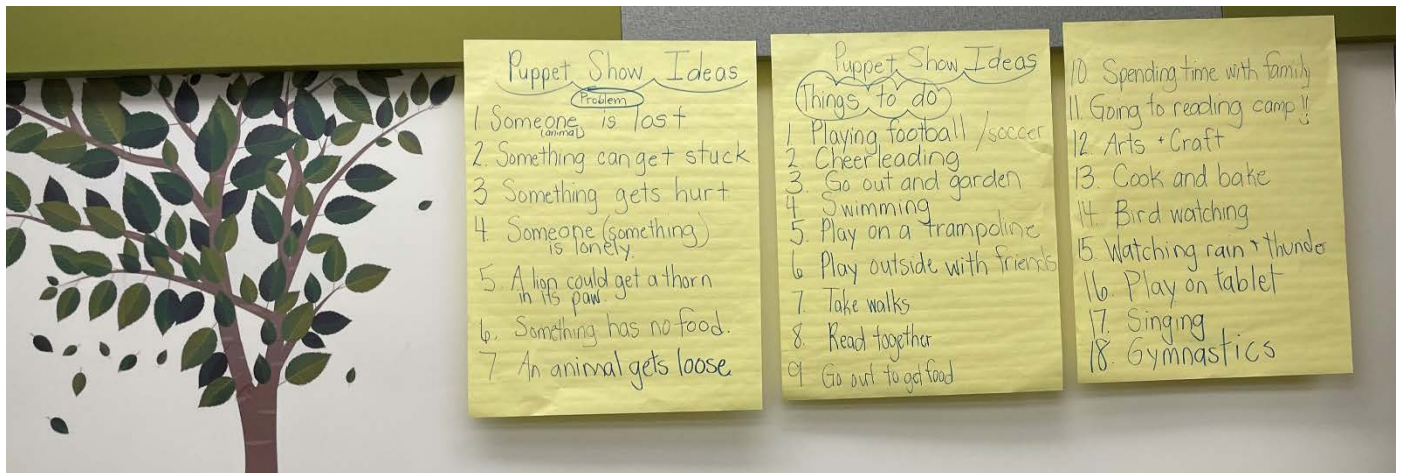 Puppet Show Ideas
Problem
1 Someone is lost
(animal)
2. Something can get stuck
3 Something gets hurt
4. Someone (something)
is lonely.
5. A lion could get a thorn
in its paw.
6. Something has no food.
7. An animal gets loose
Puppet Show Ideas
Things to do
1 Playing football /soccer
2 Cheerleading
3. Go out and garden
4 Swimming
5. Play on a trampoline
6 Play outside with friends
7. Take walks
8. Read together
9 Go out to get food
10 Spending time with family
11 Going to reading camp!!
12. Arts + Craft
13. Cook and bake
14. Bird watching
15. Watching rain + thunder
16. Play on tablet
17. Singing
18. Gymnastics